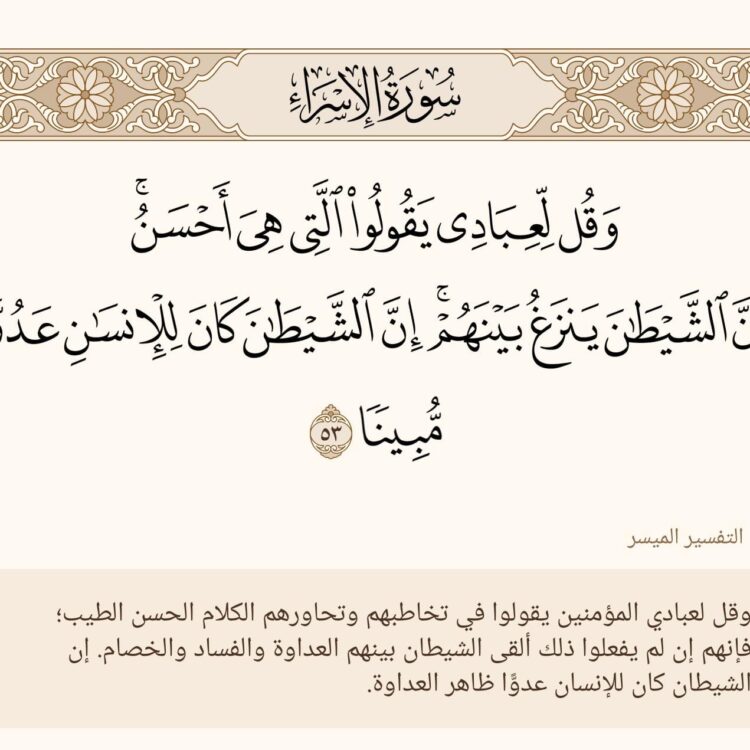 سُورَةُ الإِسْرَاءِ
وَقُل لِّعِبَادِى يَقُولُوا۟ ٱلَّتِى هِىَ أَحْسَنُ ۚ
ٱلشَّيْطَـٰنَ يَنزَغُ بَيْنَهُمْ ۚ إِنَّ ٱلشَّيْطَـٰنَ كَانَ لِلْإِنسَـٰنِ
مُّبِينًا ٥٣
التفسير الميسر
وقل لعبادي المؤمنين يقولوا في تخاطبهم وتحاورهم الكلام الحسن الطيب؛
فإنهم إن لم يفعلوا ذلك ألقى الشيطان بينهم العداوة والفساد والخصام. إن
الشيطان كان للإنسان عدوًّا ظاهر العداوة.